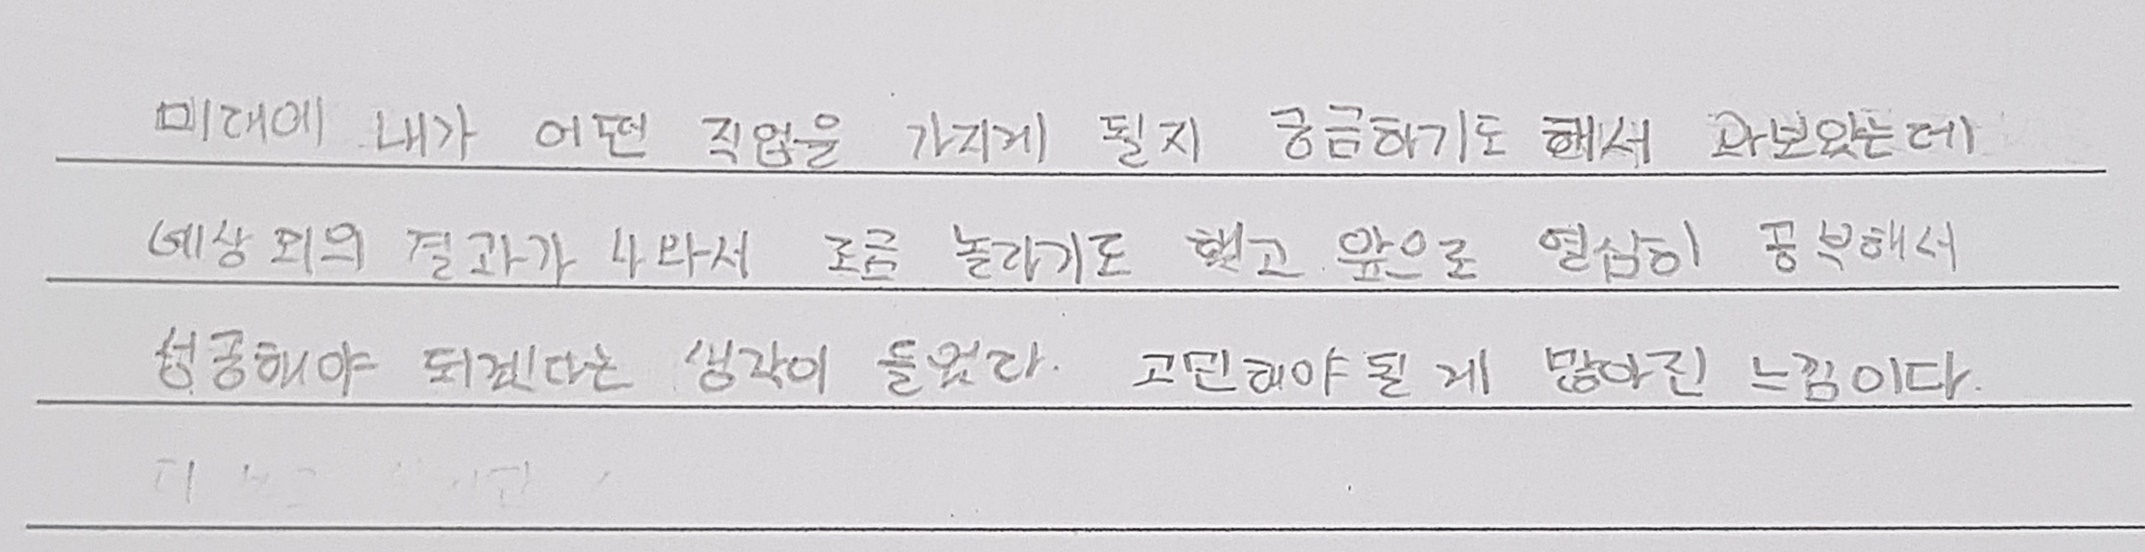 미래에 내가 어떤 직업을 가지게 될지 궁금하기도 해서 와보았는데
예상 외의 결과가 나와서 조금 놀라기도 했고 앞으로 열심히 공부해서
성공해야 되겠다는 생각이 들었다. 고민해야 될 게 많아진 느낌이다.